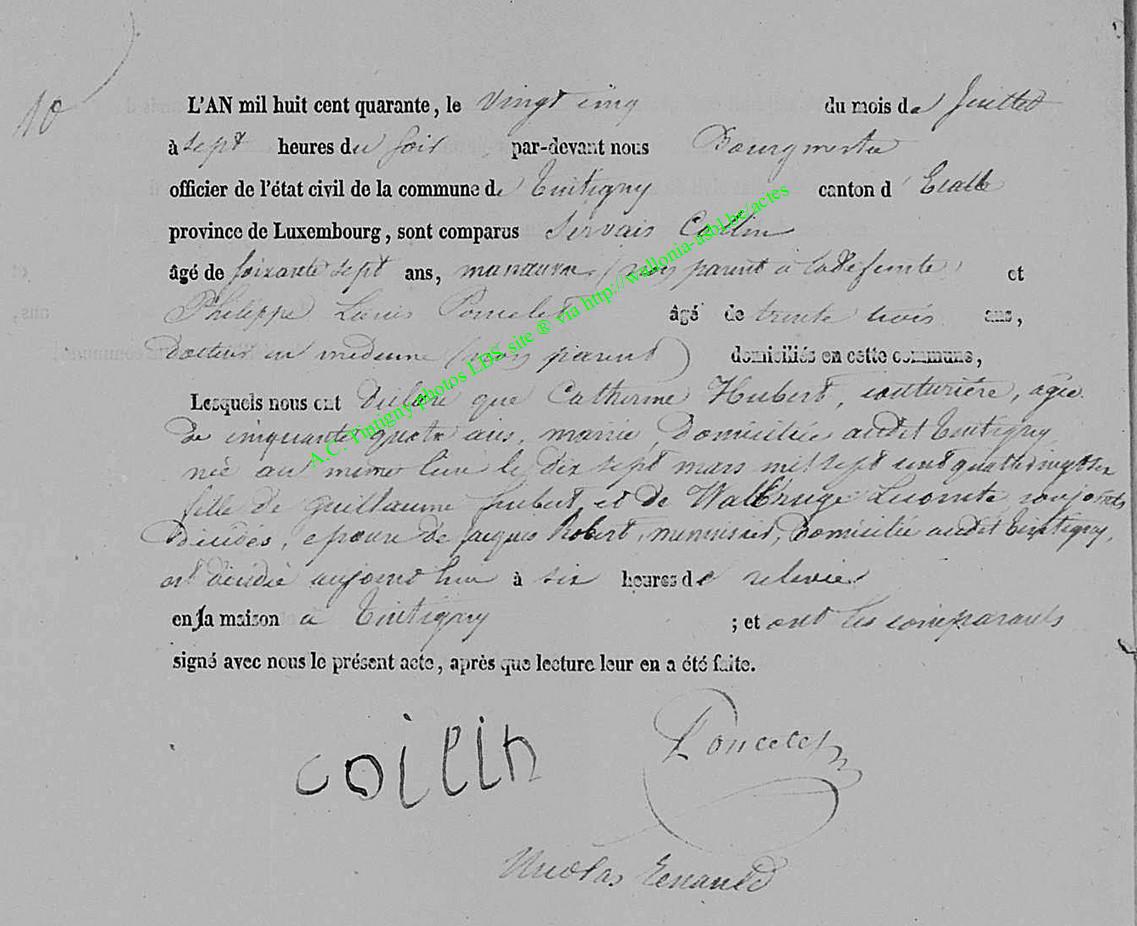 10
L'AN mil huit cent quarante, le vingt cinq du mois de Juillet
à sept heures du soir par-devant nous Bourgmestre
officier de l'état civil de la commune de Tintigny canton d' Etalle
province de Luxembourg, sont comparus Servais Collin
âgé de soixante sept ans, manœuvre (non parent à la défunte) et
Philippe Louis Poncelet âgé de trente trois ans,
docteur en médecine (non parent) domiciliés en cette commune,
Lesquels nous ont déclaré que Catherine Hubert, couturière, agée
de cinquante quatre ans, mariée, domiciliée audit Tintigny
née au même lieu le dix sept mars mil sept cent quatre vingt six
fille de Guillaume hubert et de Walbruge Lecomte conjoints
décédés, epouse de jacques Robert, menuisier, domicilié audit Tintigny,
est décédée aujourd'hui à six heures de relevée
en sa maison à Tintigny ; et ont les comparants
signé avec nous le présent acte, après que lecture leur en a été faite.
collin Poncelet
Nicolas Renauld
A.C. Tintigny photos LDS site ® via http://wallonia-asbl.be/actes